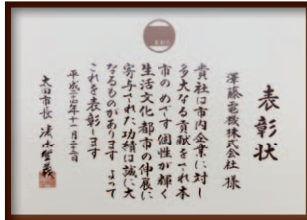 表彰状
澤藤電機株式会社 様
貴社は市内企業に対し
多大なる貢献をされ本
市のめざす個性が輝く
生活文化都市の伸展に
寄与された功績は誠に大
なるものがあります よって
これを表彰します
平成二十四年十一月二十二日
太田市長 清水聖義